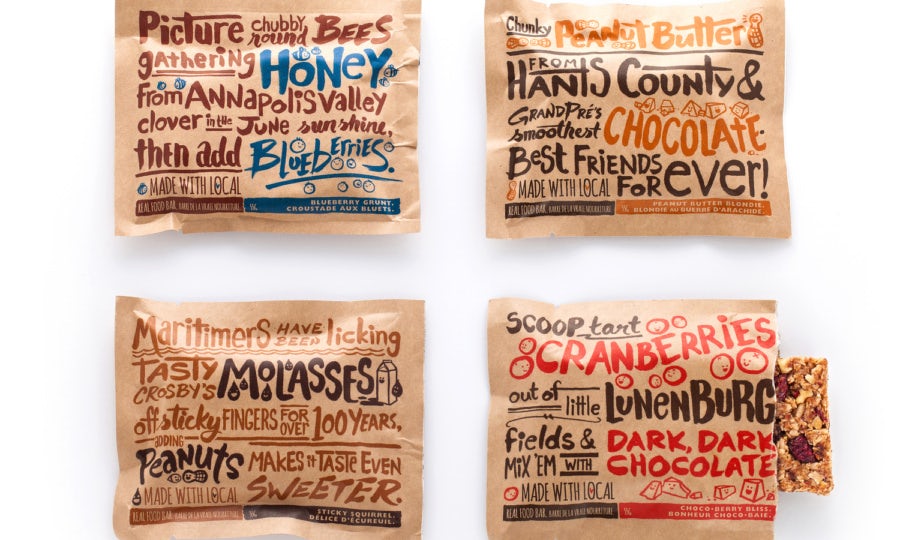 Picture chubby, round BEES
gathering HONEY
from ANNAPOLIS VALLEY
clover in the JUNE sunshine,
then add BLUEBERRIES.
MADE WITH LOCAL
REAL FOOD BAR. BARRE DE LA VRAIE NOURRITURE 55G
BLUEBERRY GRUNT.
CROUSTADE AUX BLUETS.
Chunky PEANUT BUTTER
FROM HANTS COUNTY &
GRAND PRÉ'S smoothest CHOCOLATE.
BEST FRIENDS FOR ever!
MADE WITH LOCAL
REAL FOOD BAR. BARRE DE LA VRAIE NOURRITURE 55G
PEANUT BUTTER BLONDIE.
BLONDIE AU BEURRE D'ARACHIDE.
Maritimers HAVE BEEN licking
TASTY CROSBY'S MOLASSES
off sticky FINGERS FOR OVER 100 YEARS,
ADDING PEANUTS MAKES it TASTE EVEN
SWEETER.
MADE WITH LOCAL
REAL FOOD BAR. BARRE DE LA VRAIE NOURRITURE 55G
STICKY SQUIRREL.
DÉLICE D'ÉCUREUIL.
SCOOP tart
CRANBERRIES
out of little LUNENBURG
fields & DARK, DARK
MIX 'EM WITH CHOCOLATE
MADE WITH LOCAL
REAL FOOD BAR. BARRE DE LA VRAIE NOURRITURE 55G
CHOCO-BERRY BLISS.
BONHEUR CHOCO-BAIE.